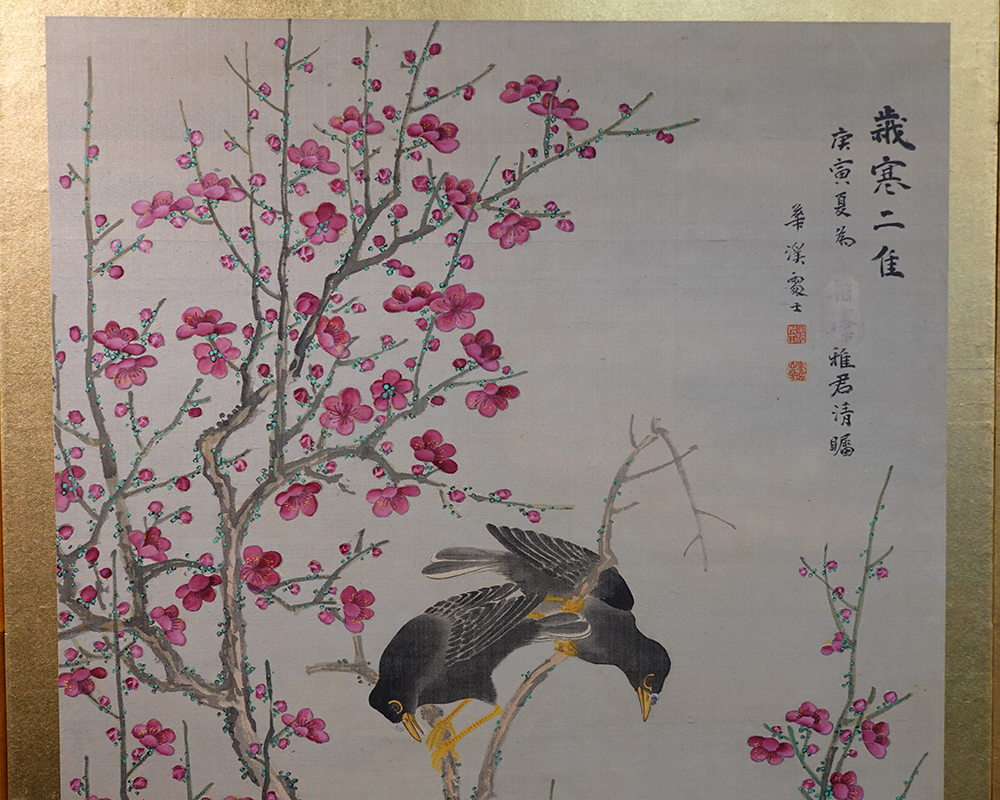 歲寒二隹
庚寅夏為
雅君清矚
華溪處士